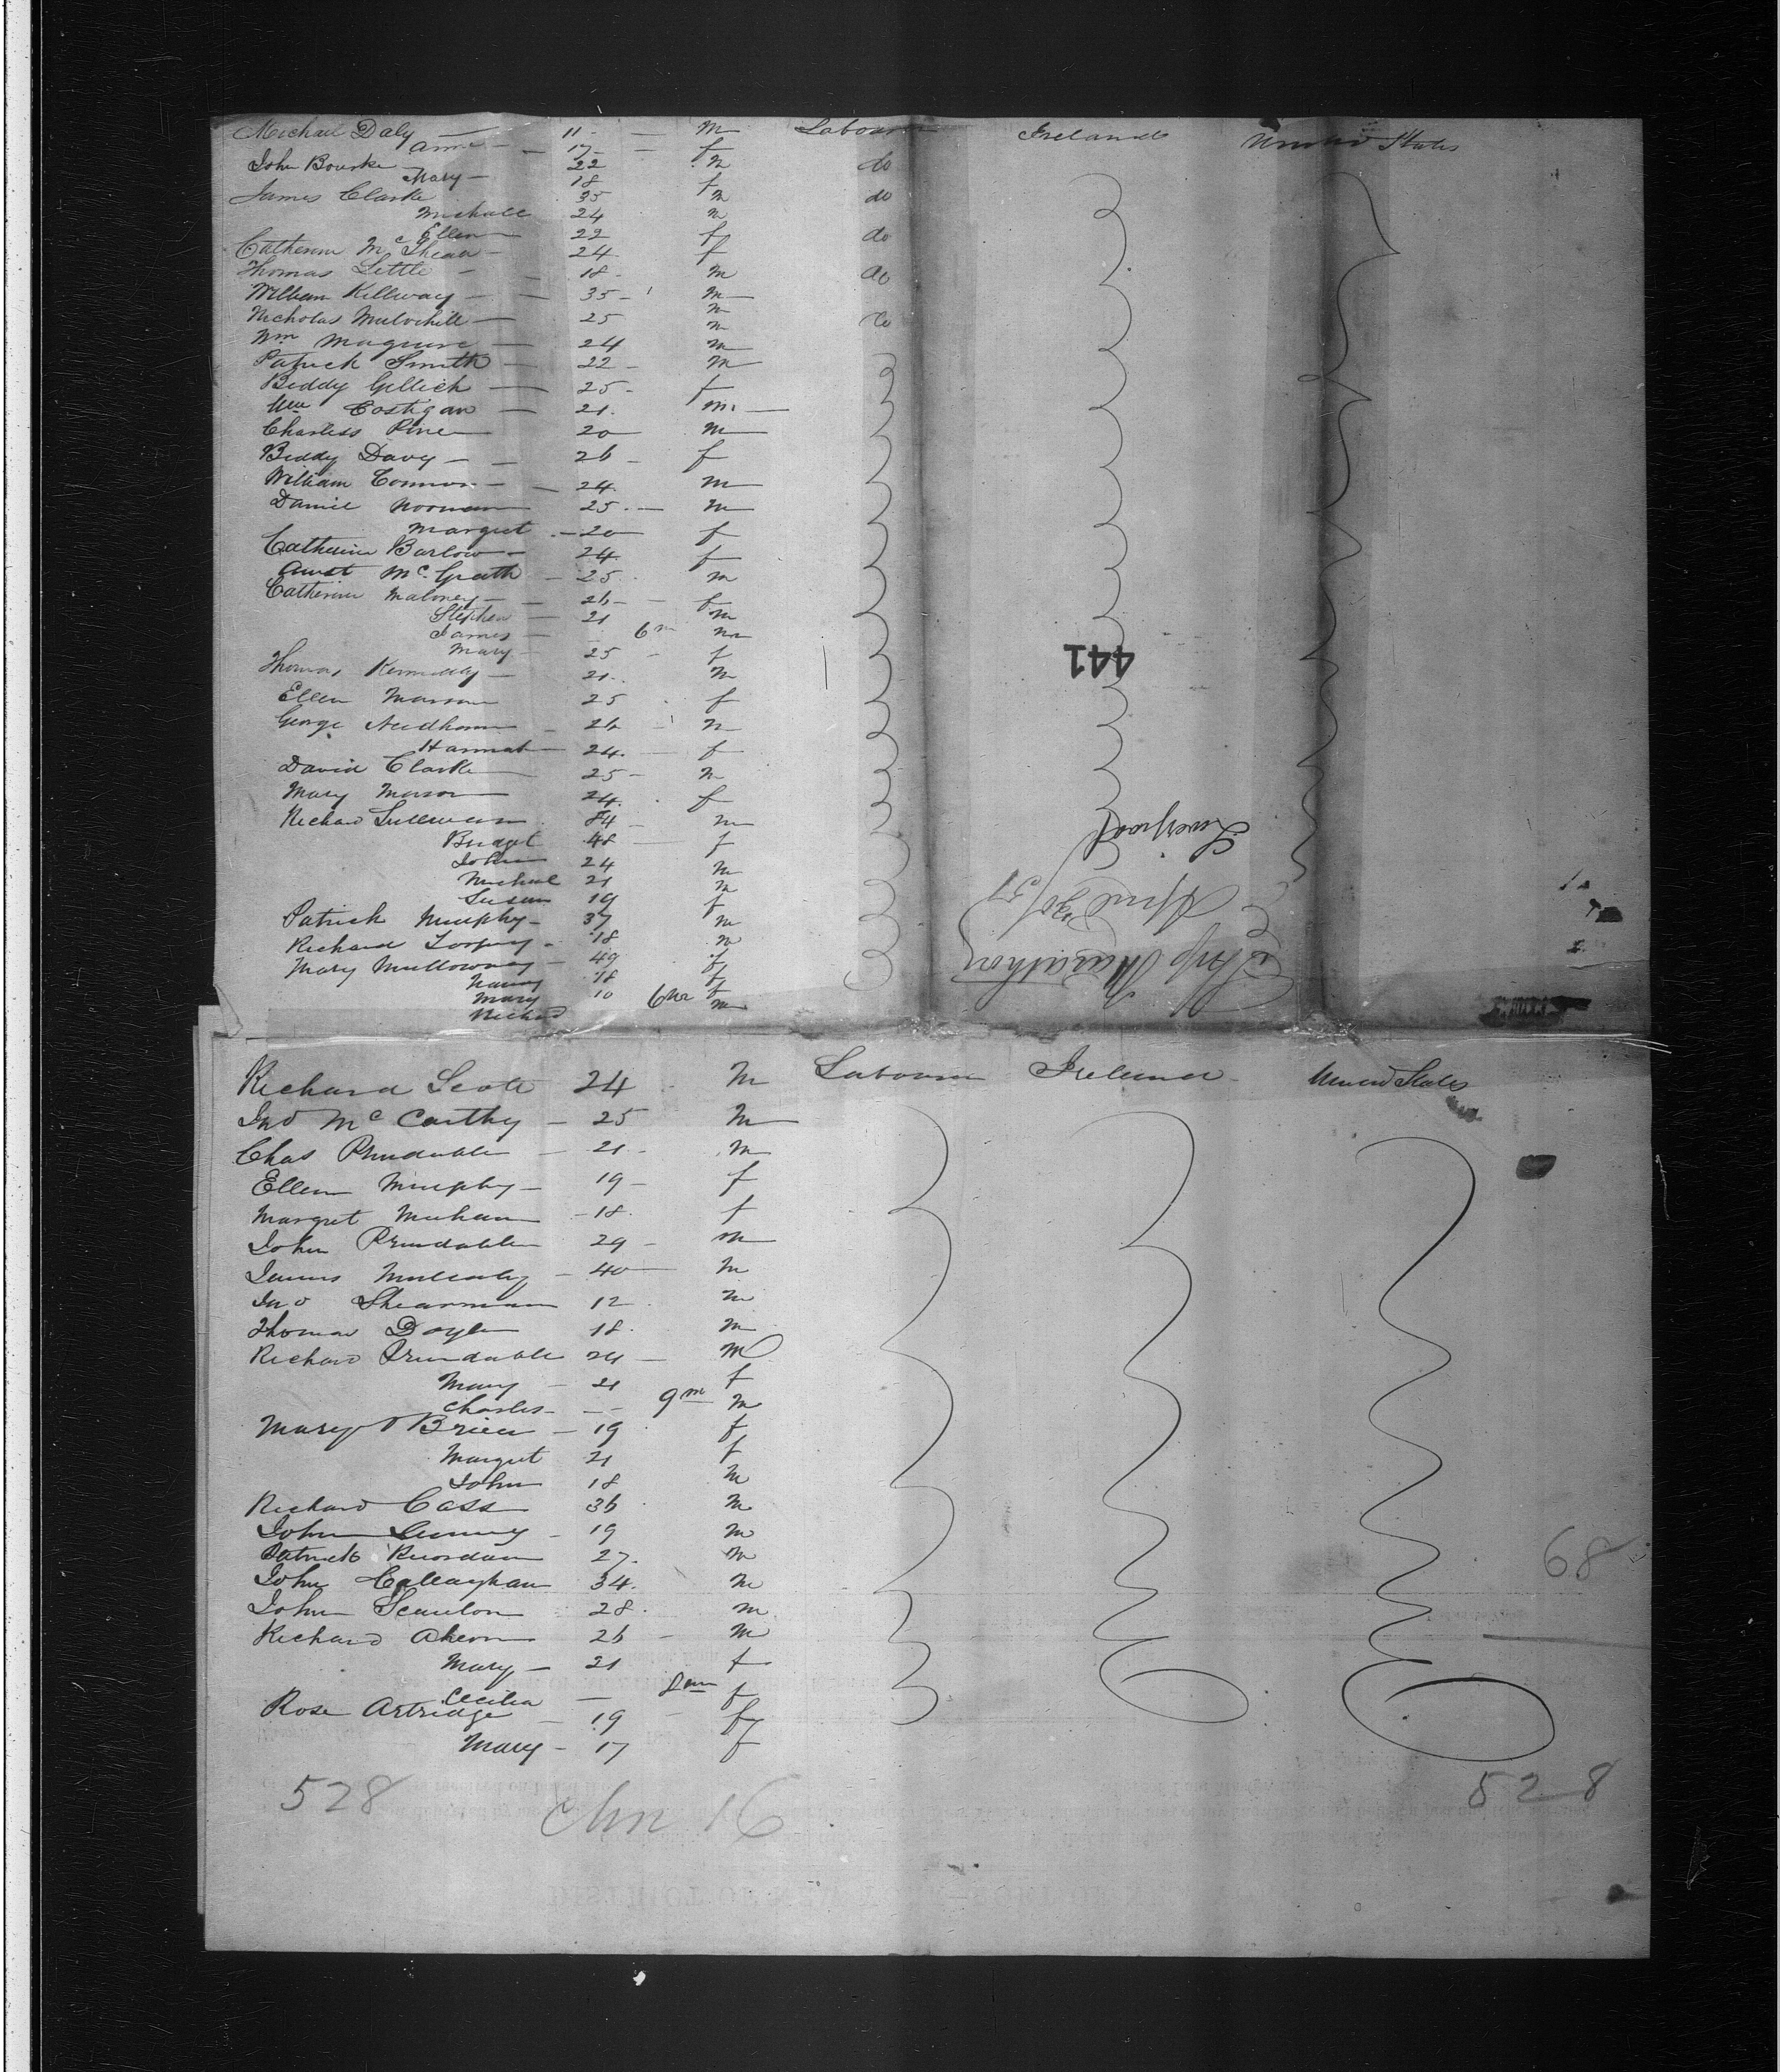 Michael Daly — 11 — m Labourer Ireland United States
Anne — 17 — f
John Bourke — 22 m do
Mary — 18 f
James Clarke 35 m do
Michall 24 m
Ellen 22 f do
Catherine Mc 24 f
Thomas Little — 18 m do
William Killway — 35 — m
Nicholas Mulvihill — 25 m do
Wm Maguire — 24 m
Patrick Smith — 22 — m
Biddy Gillich — 25 — f
Wm Costigan — 21 m
Charless Pine 20 m
Biddy Davy — 26 — f
William Connor — 24 m
Daniel Noonan 25 — m
Margret — 20 f
Catherine Barlow — 24 f
Mc Grath — 25 m
Catherine Maloney — 26 — f
Stephen — 21 m
James — 6m m
Mary 25 f
Thomas Kennedy — 21 m
Ellen 25 f
George Needham 26 m
Hannah 24 f
David Clarke 25 — m
Mary Mason 24 f
Richard Sullivan 84 — m
Bridget 48 f
John 24 m
Michael 21 m
Susan 19 f
Patrick Murphy — 37 m
Richard 18 m
Mary Mullownay 49 f
Nancy 18 f
Mary 10 f
Richard 6m m
441
Liverpool
April 30/51
Ship Marathon
Richard Scott 24 m Labourer Ireland United States
Jno Mc Carthy — 25 m
Chas Prendable — 21 — m
Ellen Murphy — 19 — f
Margret Meehan — 18 f
John Prendable 29 — m
James Mulcahy — 40 m
Jno Shearman 12 m
Thomas Doyle 18 m
Richard Prendable 24 — m
Mary — 21 f
Charles — 9m m
Mary O Brien — 19 f
Margret 21 f
John 18 m
Richard Cass 36 m
John 19 m
Patrick Riordan 27 m
John Callaghan 34 m
John Scanlon 28 m
Richard Ahern 26 — m
68
Mary — 21 f
Cecilia — 8m f
Rose Artridge — 19 f
Mary — 17 f
528
528
16